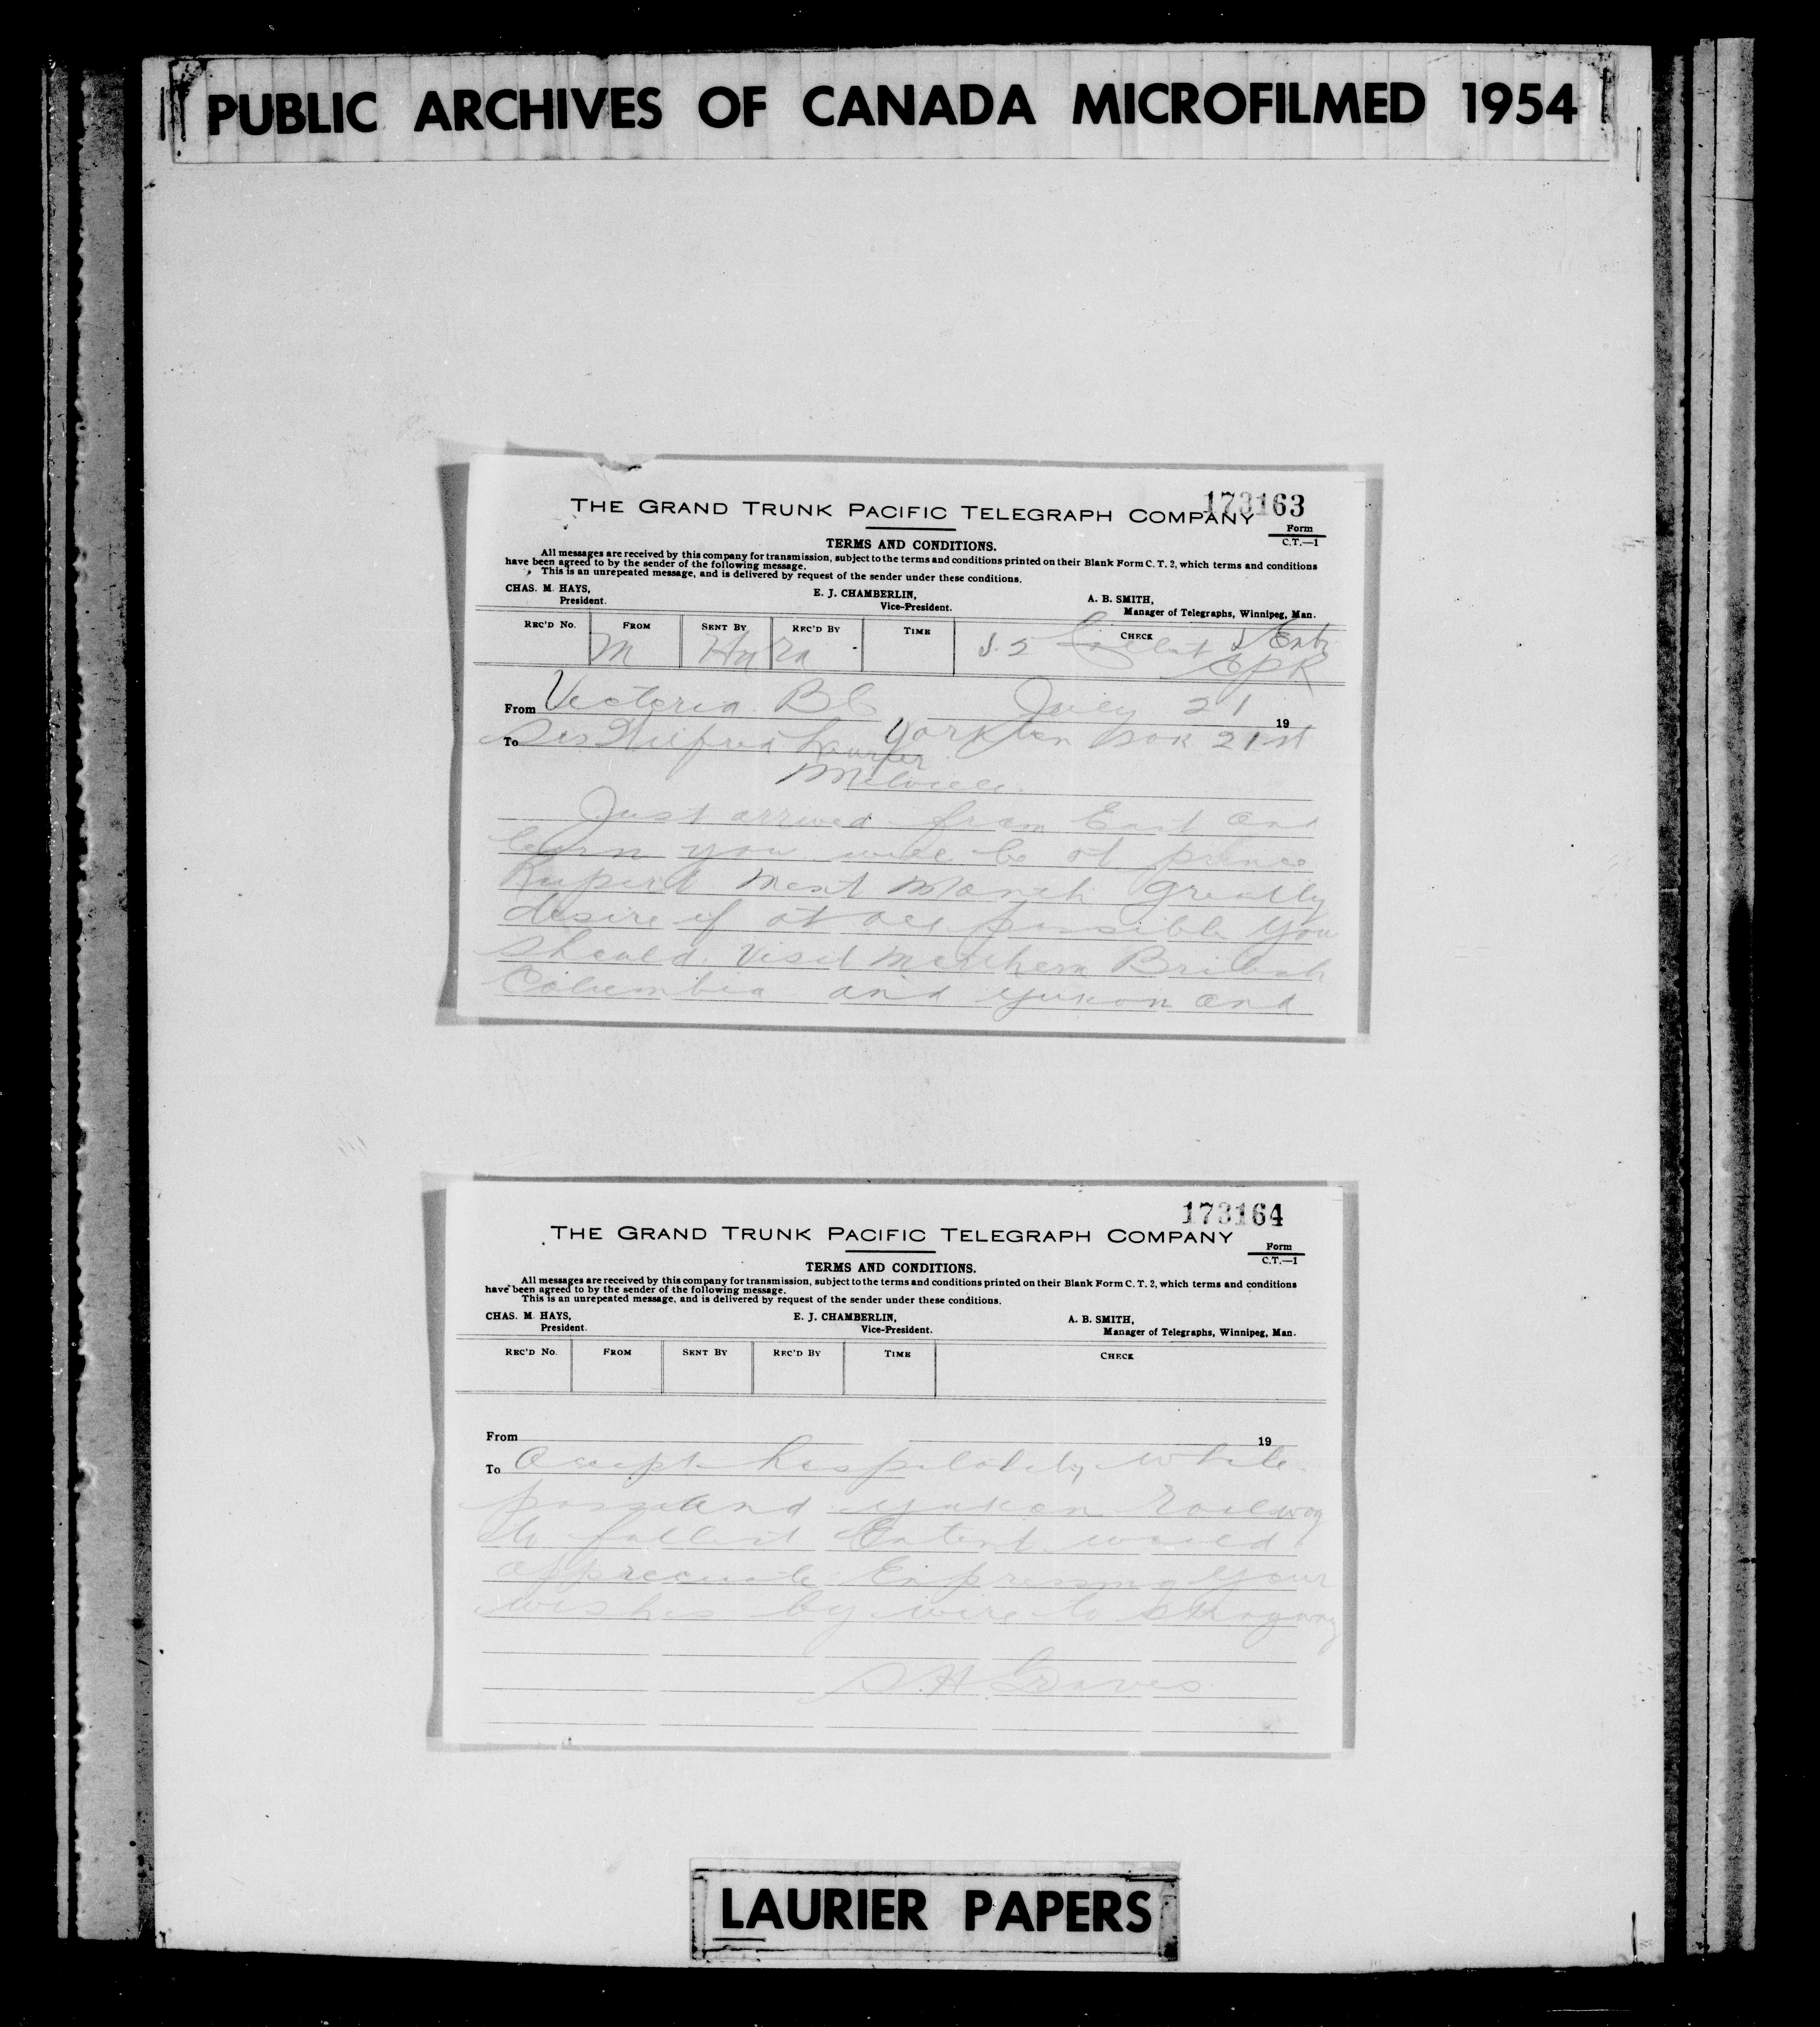 PUBLIC ARCHIVES OF CANADA MICROFILMED 1954
173163
THE GRAND TRUNK PACIFIC TELEGRAPH COMPANY
Form
C.T.—1
TERMS AND CONDITIONS.
All messages are received by this company for transmission, subject to the terms and conditions printed on their Blank Form C. T. 2, which terms and conditions
have been agreed to by the sender of the following message.
This is an unrepeated message, and is delivered by request of the sender under these conditions.
CHAS. M. HAYS, E. J. CHAMBERLIN, A. B. SMITH,
President. Vice-President. Manager of Telegraphs, Winnipeg, Man.
REC'D No. FROM SENT BY REC'D BY TIME CHECK
M Collect
CPR
From Victoria BC July 21 19
To Sir Wilfrid Laurier Yorkton Sask 21st
Melville
Just arrived from East and
learn you will be at prince
Rupert next Month greatly
desire if at all possible you
should visit Northern British
Columbia and yukon and
173164
THE GRAND TRUNK PACIFIC TELEGRAPH COMPANY
Form
C.T.—1
TERMS AND CONDITIONS.
All messages are received by this company for transmission, subject to the terms and conditions printed on their Blank Form C. T. 2, which terms and conditions
have been agreed to by the sender of the following message.
This is an unrepeated message, and is delivered by request of the sender under these conditions.
CHAS. M. HAYS, E. J. CHAMBERLIN, A. B. SMITH,
President. Vice-President. Manager of Telegraphs, Winnipeg, Man.
REC'D No. FROM SENT BY REC'D BY TIME CHECK
From 19
To Accept hospitality white
pass and yukon Railway
to fullest Extent would
appreciate Expressing your
wishes by wire to skagway
S.H. Graves
LAURIER PAPERS